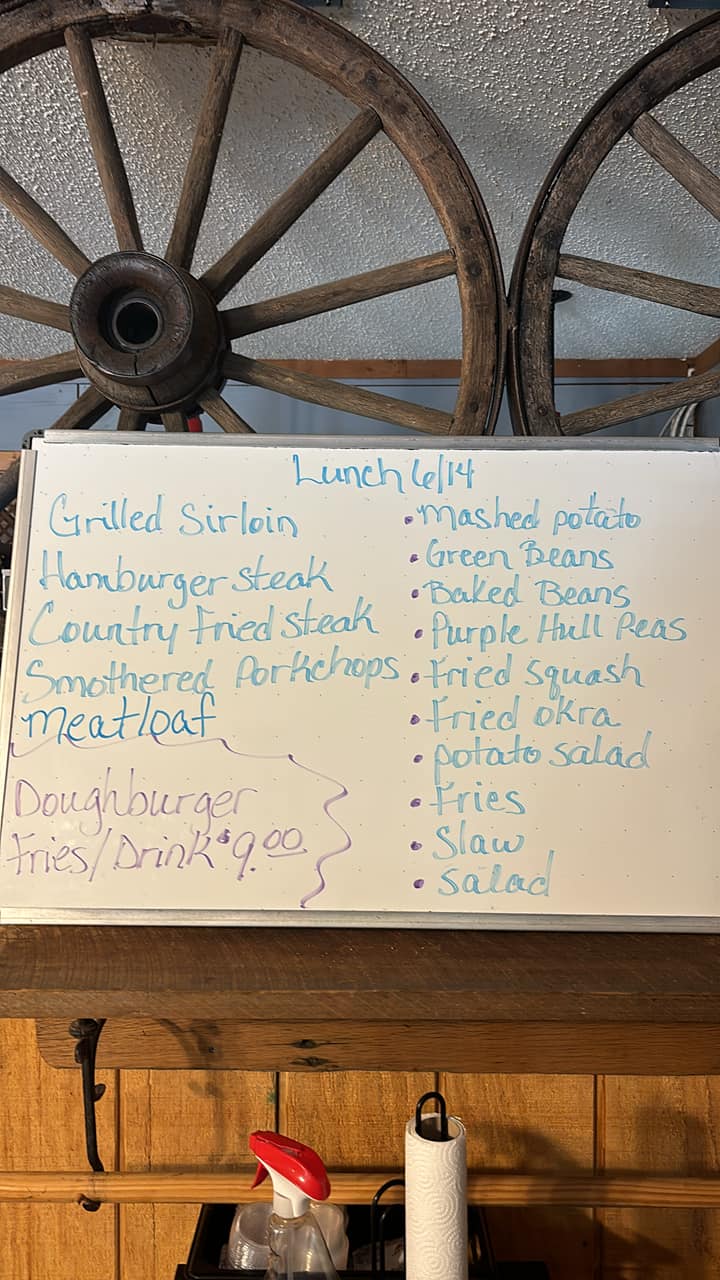 Lunch 6/14
Grilled Sirloin
Hamburger steak
Country Fried steak
Smothered Porkchops
meatloaf
Doughburger
Fries/Drink $9.00
• mashed potato
• Green Beans
• Baked Beans
• Purple Hull Peas
• Fried squash
• Fried okra
• potato salad
• Fries
• Slaw
• salad